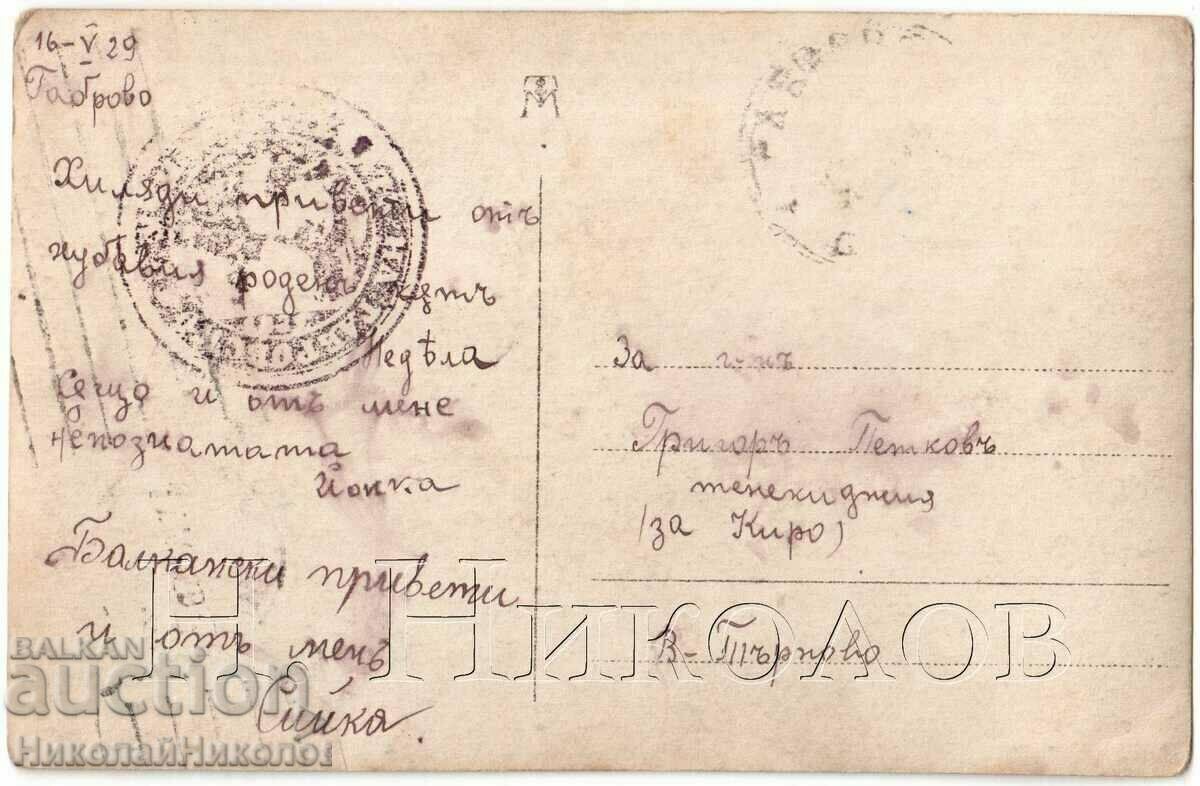 16-V 29
Габрово
Хиляди привети отъ
хубавия роденъ кѫтъ
Недѣла
Сѫщо и отъ мене
непознатата
Йонка
Балкански привети
и отъ менъ
За г-нъ
Григоръ Петковъ
тенекиджия
/за Киро)
В-Търново
Н. Николов
BALKAN
auction
НиколайНиколов